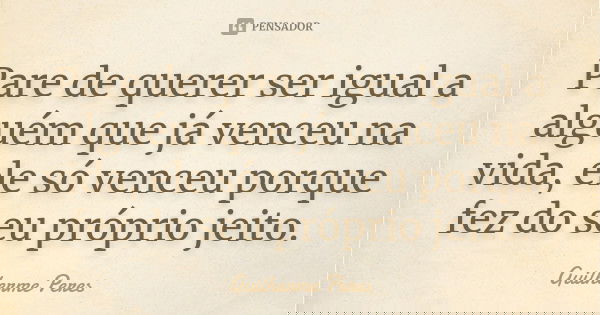 PENSADOR
Pare de querer ser igual a
alguém que já venceu na
vida, ele só venceu porque
fez do seu próprio jeito.
Guilherme Peres